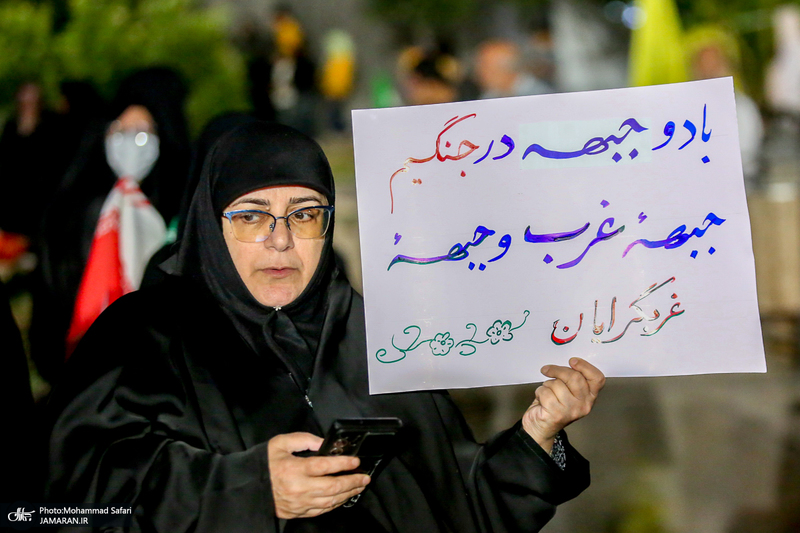 با دو جبهه در جنگیم
جبههٔ غرب و جبههٔ
غربگرایان
Photo:Mohammad Safari
JAMARAN.IR